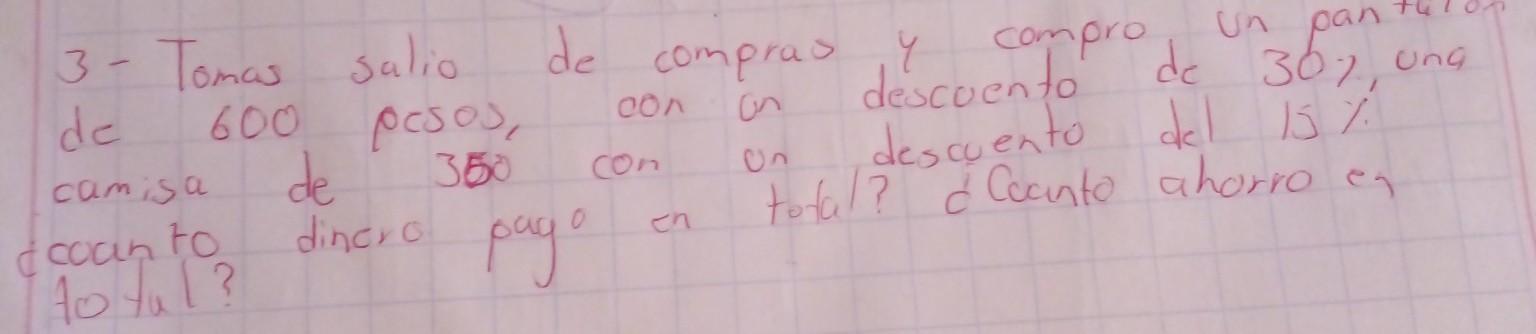 3- Tomas salio de compras y compro un pantalon
de 600 pesos, con un descuento de 30%, una
camisa de 350 con un descuento del 15%
¿cuanto dinero pago en total? ¿Cuanto ahorro en
total?